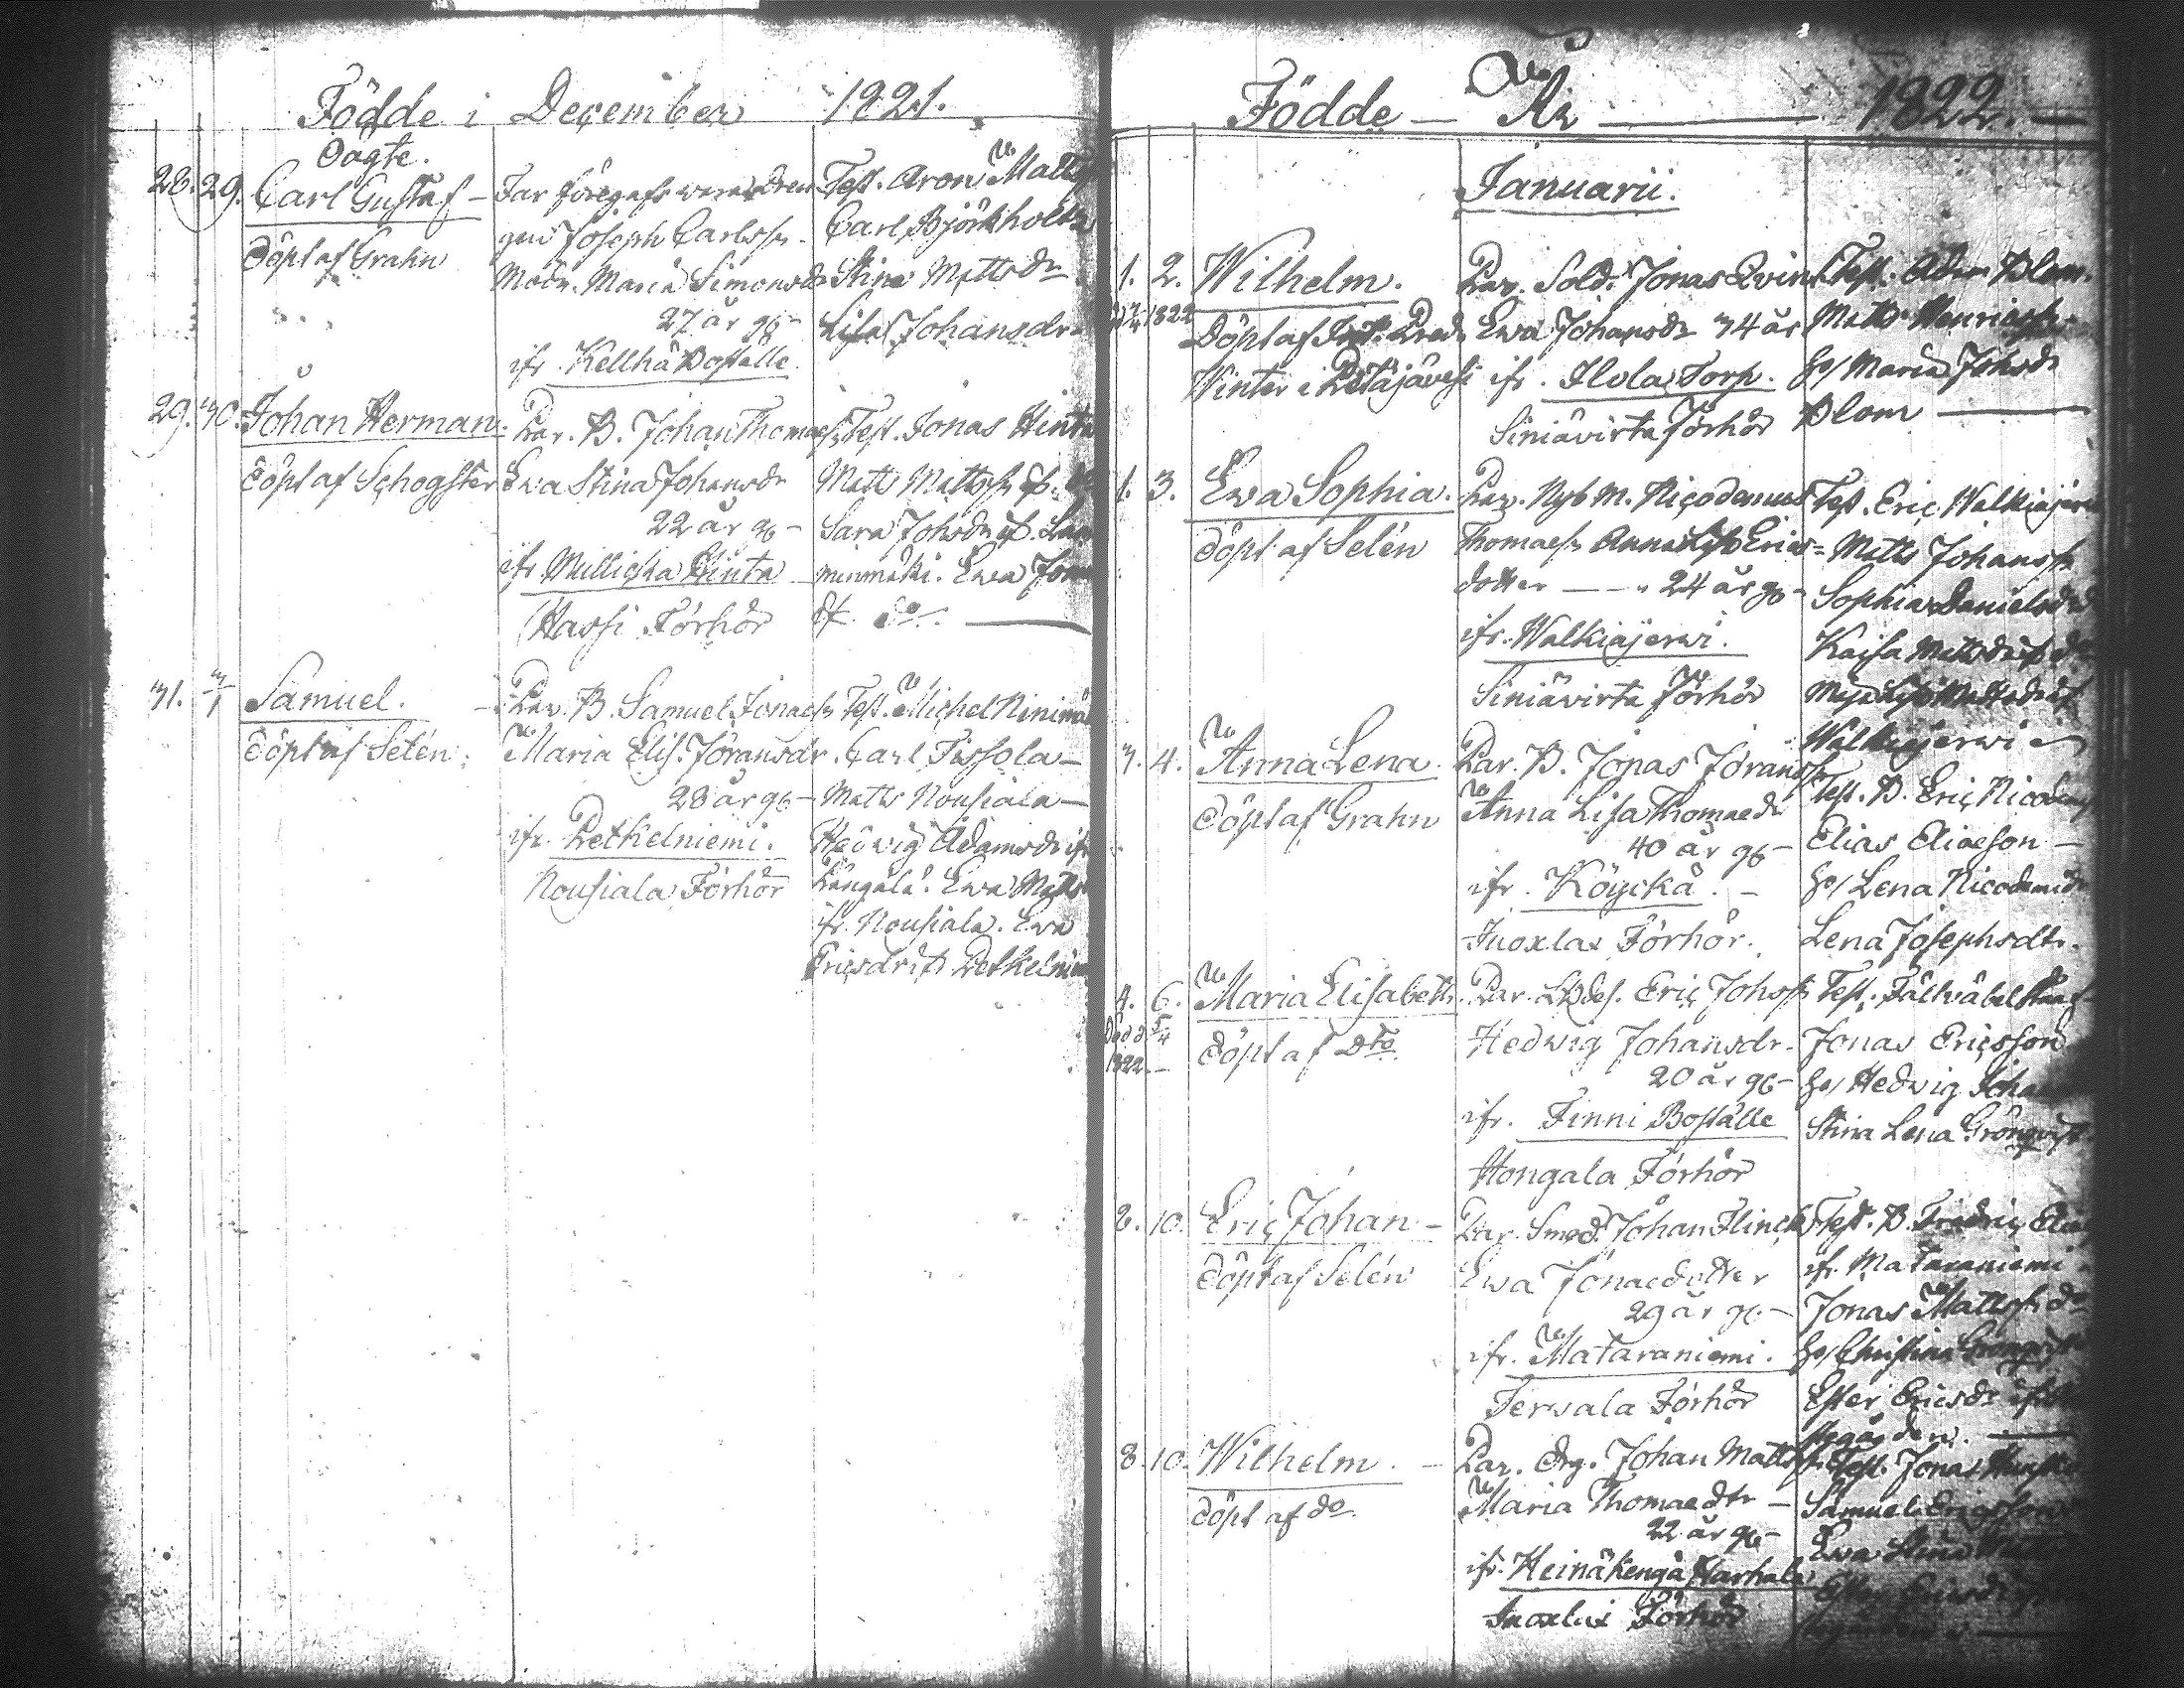 Födde i December 1821.
Oägte.
28. 29. Carl Gustaf –
döpt af Grahn
Far föregafs wara dren
gen Joseph Carlsson.
Modr. Maria Simonsdr
27 år gb –
ifr. Kellhä Boställe.
Test. Aron Matts
Carl Björkholts
Stina Mattsdr
Lisa Johansdr
29. 30. Johan Herman.
döpt af Schogster
Par. B. Johan Thomaess.
Ewa Stina Johansdr
22 år gb –
ifr. Hinta
Hassi Förhör
Test. Jonas Hinta
Matts Mattss. if.
Sara Johsdr if.
minmäki. Ewa
do.
31. 3/1 Samuel. –
döpt af Selén.
Par. B. Samuel Jonaess.
Maria Elis. Göransdr.
28 år gb –
ifr. Petkelniemi.
Nousiala Förhör
Test. Michel
Carl –
Matts Nousiala –
Hedwig Adamsdr ifr
Ewa Matts
ifr. Nousiala. Ewa
Ericsdr if. Petkelniem
Födde – År – 1822. –
Januarii.
1. 2. Wilhelm.
1822
Döpt af Pred.
Winter i Petäjävesi
Par. Sold. Jonas Qvin
Ewa Johansdr 34 år
ifr. Ilola Torp.
Siniävirta Förhör
Test. Adm Blom.
Matts Henricss.
Maria Johsdr
Blom –
1. 3. Ewa Sophia.
döpt af Selén
Par. Nyb M. Nicodemus
Thomaess. Anna Lis. Erics=
dotter – 24 år gb –
ifr. Walkiajerwi.
Siniävirta Förhör
Test. Eric Walkiajerw
Matts Johanss.
Sophia Danielsdr
Kaisa Mattsdr if do
Maja Lis. Mattsdr if
Walkiajerwi
3. 4. Anna Lena.
döpt af Grahn
Par. B. Jonas Göranss.
Anna Lisa Thomaedr
40 år gb –
ifr. Köyckä. –
Förhör.
Test. B. Eric Nicodem
Elias Eliaeson –
Lena Nicodemidr
Lena Josephsdtr.
4. 6. Maria Elisabeth.
Död d 5/4
1822. –
döpt af Dto.
Par. Eric Johss.
Hedwig Johansdr.
20 år gb –
ifr. Finni Boställe
Hongala Förhör
Test. Fältväbel
Jonas Ericsson
Hedvig Johan
Stina Lena Grönqvist
8. 10. Eric Johan –
döpt af Selén
Par. Smed. Johan Flinck
Ewa Jonaedotter
29 år gb. –
ifr. Mataraniemi.
Terwala Förhör
Test. B. Fredric Elia
ifr. Mataraniemi
Jonas Mattss. do
Christina Grönqvist
Ester Ericsdr
8. 10. Wilhelm. –
döpt af do.
Par. Drg. Johan Mattss.
Maria Thomaedtr –
22 år gb –
ifr. Heinäkengä Harhala
Förhör
Test. Jonas
Samuel Ericsson
Ewa Stina
Ester Ericsdr